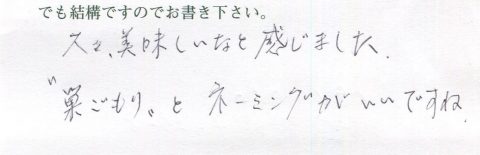 でも結構ですのでお書き下さい。
久々、美味しいなと感じました、
"巣ごもり〟と ネーミングがいいですね、